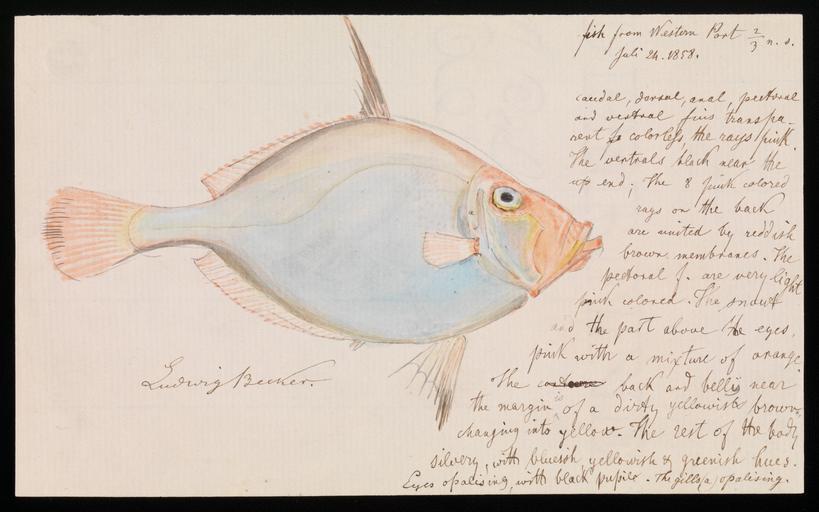 fish from Western Port 2/3 n. s.
Juli 24. 1858.
caudal, dorsal, anal, pectoral
and ventral fins transpa-
rent & colorless, the rays pink.
The ventrals black near the
up end; The 8 pink colored
rays on the back
are united by reddish
brown membranes. The
pectoral f. are very light
pink colored. The snout
and the part above the eyes,
pink with a mixture of orange
The back and belly near
the margin is of a dirty yellowish brown,
changing into yellow. The rest of the body
silvery, with bluessh yellowish & greenish hues.
Eyes opalising, with black pupils. The gills (a) opalising.
Ludwig Becker.
a